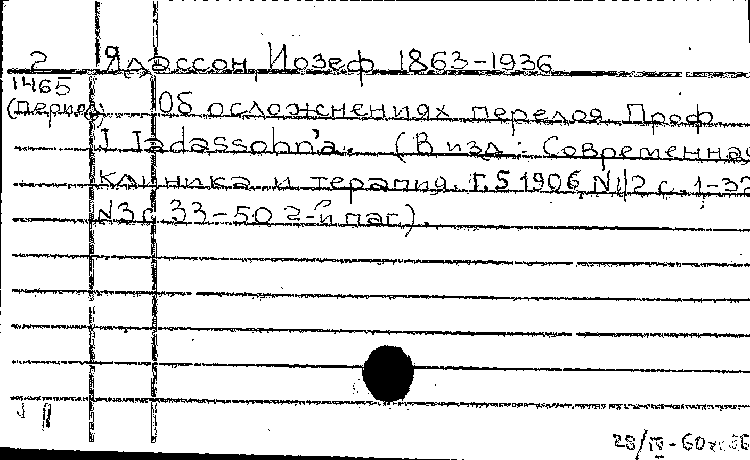 2 Ядассон Иозеф 1863-1936
1465
(период)
Об осложнениях перелоя. Проф.
J Jadassohn'a. (В изд.: Современная
клиника и терапия. Г. 5 1906, N1/2 с. 1-32
N3 с 33-50 2-й паг.).
28/IV-60